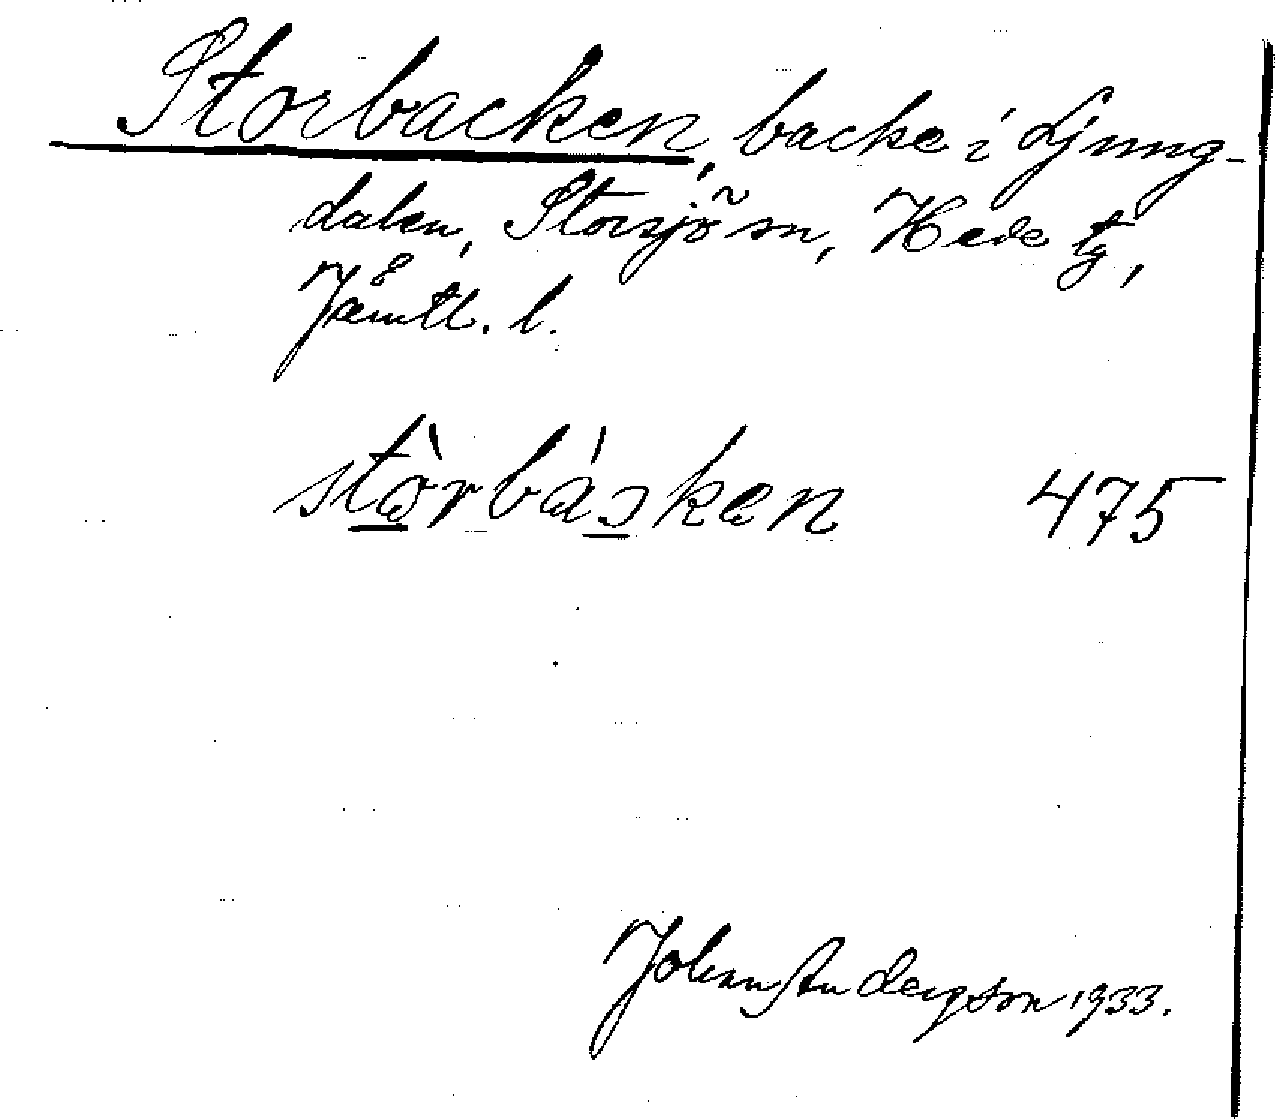 Storbacken, backe i Ljung-
dalen, Storsjö sn, Hede tg,
Jämtl. l.
stòrbásken 475
Johan Andersson 1933.